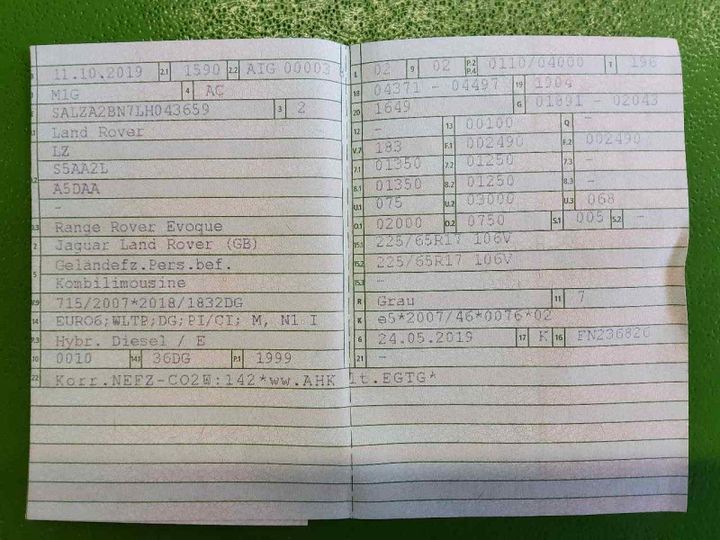 B 11.10.2019 2.1 1590 2.2 AIG 00003
J M1G 4 AC
E SALZA2BN7LH043659 3 2
Land Rover
LZ
S5AA2L
D.2 A5DAA
-
D.3 Range Rover Evoque
2 Jaguar Land Rover (GB)
5 Geländefz.Pers.bef.
Kombilimousine
V.9 715/2007*2018/1832DG
14 EURO6;WLTP;DG;PI/CI; M, N1 I
P.3 Hybr. Diesel / E
10 0010 14.1 36DG P.1 1999
22 Korr.NEFZ-CO2 :142*ww.AHK lt.EGTG*
L 02 9 02 P.2 P.4 0110/04000 T 196
18 04371 - 04497 19 1904
20 1649 G 01891 - 02043
12 - 13 00100 Q -
V.7 183 F.1 002490 F.2 002490
7.1 01350 7.2 01250 7.3 -
8.1 01350 8.2 01250 8.3 -
U.1 075 U.2 03000 U.3 068
O.1 02000 O.2 0750 S.1 005 S.2 -
15.1 225/65R17 106V
15.2 225/65R17 106V
-
R Grau 11 7
K e5*2007/46*0076*02
6 24.05.2019 17 K 16 FN236826
21 -